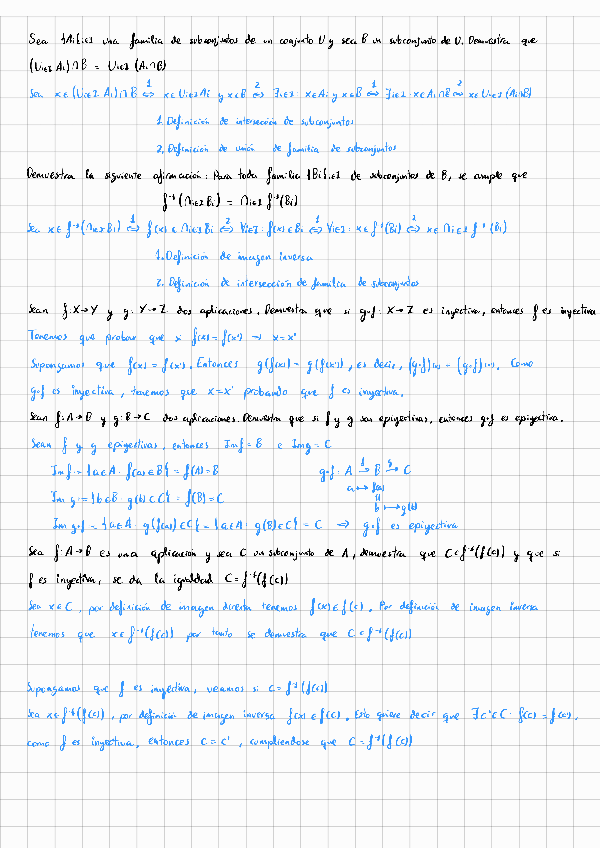 Sea {Ai}i∈I una familia de subconjuntos de un conjunto U y sea B un subconjunto de U. Demuestra que
(∪i∈I Ai)∩B = ∪i∈I (Ai∩B)
Sea x∈(∪i∈I Ai)∩B ⇔¹ x∈∪i∈I Ai y x∈B ⇔² ∃i∈I· x∈Ai y x∈B ⇔¹ ∃i∈I· x∈Ai∩B ⇔² x∈∪i∈I (Ai∩B)
1. Definición de intersección de subconjuntos
2. Definición de unión de familia de subconjuntos
Demuestra la siguiente afirmación: Para toda familia {Bi}i∈I de subconjuntos de B, se cumple que
f⁻¹(∩i∈I Bi) = ∩i∈I f⁻¹(Bi)
Sea x∈ f⁻¹(∩i∈I Bi) ⇔¹ f(x)∈ ∩i∈I Bi ⇔² ∀i∈I· f(x)∈Bi ⇔¹ ∀i∈I· x∈f⁻¹(Bi) ⇔² x∈ ∩i∈I f⁻¹(Bi)
1. Definición de imagen inversa
2. Definición de intersección de familia de subconjuntos
Sean f: X→Y y g: Y→Z dos aplicaciones. Demuestra que si g∘f: X→Z es inyectiva, entonces f es inyectiva
Tenemos que probar que si f(x) = f(x') → x=x'
Supongamos que f(x) = f(x'). Entonces g(f(x)) = g(f(x')), es decir, (g∘f)(x) = (g∘f)(x'). Como
g∘f es inyectiva, tenemos que x=x' probando que f es inyectiva.
Sean f: A→B y g: B→C dos aplicaciones. Demuestra que si f y g son epiyectivas, entonces g∘f es epiyectiva.
Sean f y g epiyectivas, entonces Imf = B e Img = C
Imf = {a∈A· f(a)∈B} = f(A) = B g∘f: A →f B →g C
a ↦ f(a)
Im g = {b∈B g(b)∈C} = f(B) = C b ↦ g(b)
Im g∘f = {a∈A· g(f(a))∈C} = {a∈A· g(B)∈C} = C ⇒ g∘f es epiyectiva
Sea f: A→B es una aplicación y sea C un subconjunto de A, demuestra que C⊂f⁻¹(f(C)) y que si
f es inyectiva, se da la igualdad C = f⁻¹(f(C))
Sea x∈C, por definición de imagen directa tenemos f(x)∈f(C). Por definición de imagen inversa
tenemos que x∈f⁻¹(f(C)) por tanto se demuestra que C⊂f⁻¹(f(C))
Supongamos que f es inyectiva, veamos si C = f⁻¹(f(C))
Sea x∈f⁻¹(f(C)), por definición de imagen inversa f(x)∈f(C). Esto quiere decir que ∃c'∈C· f(c) = f(c'),
como f es inyectiva, entonces c = c', cumpliendose que C = f⁻¹(f(C))